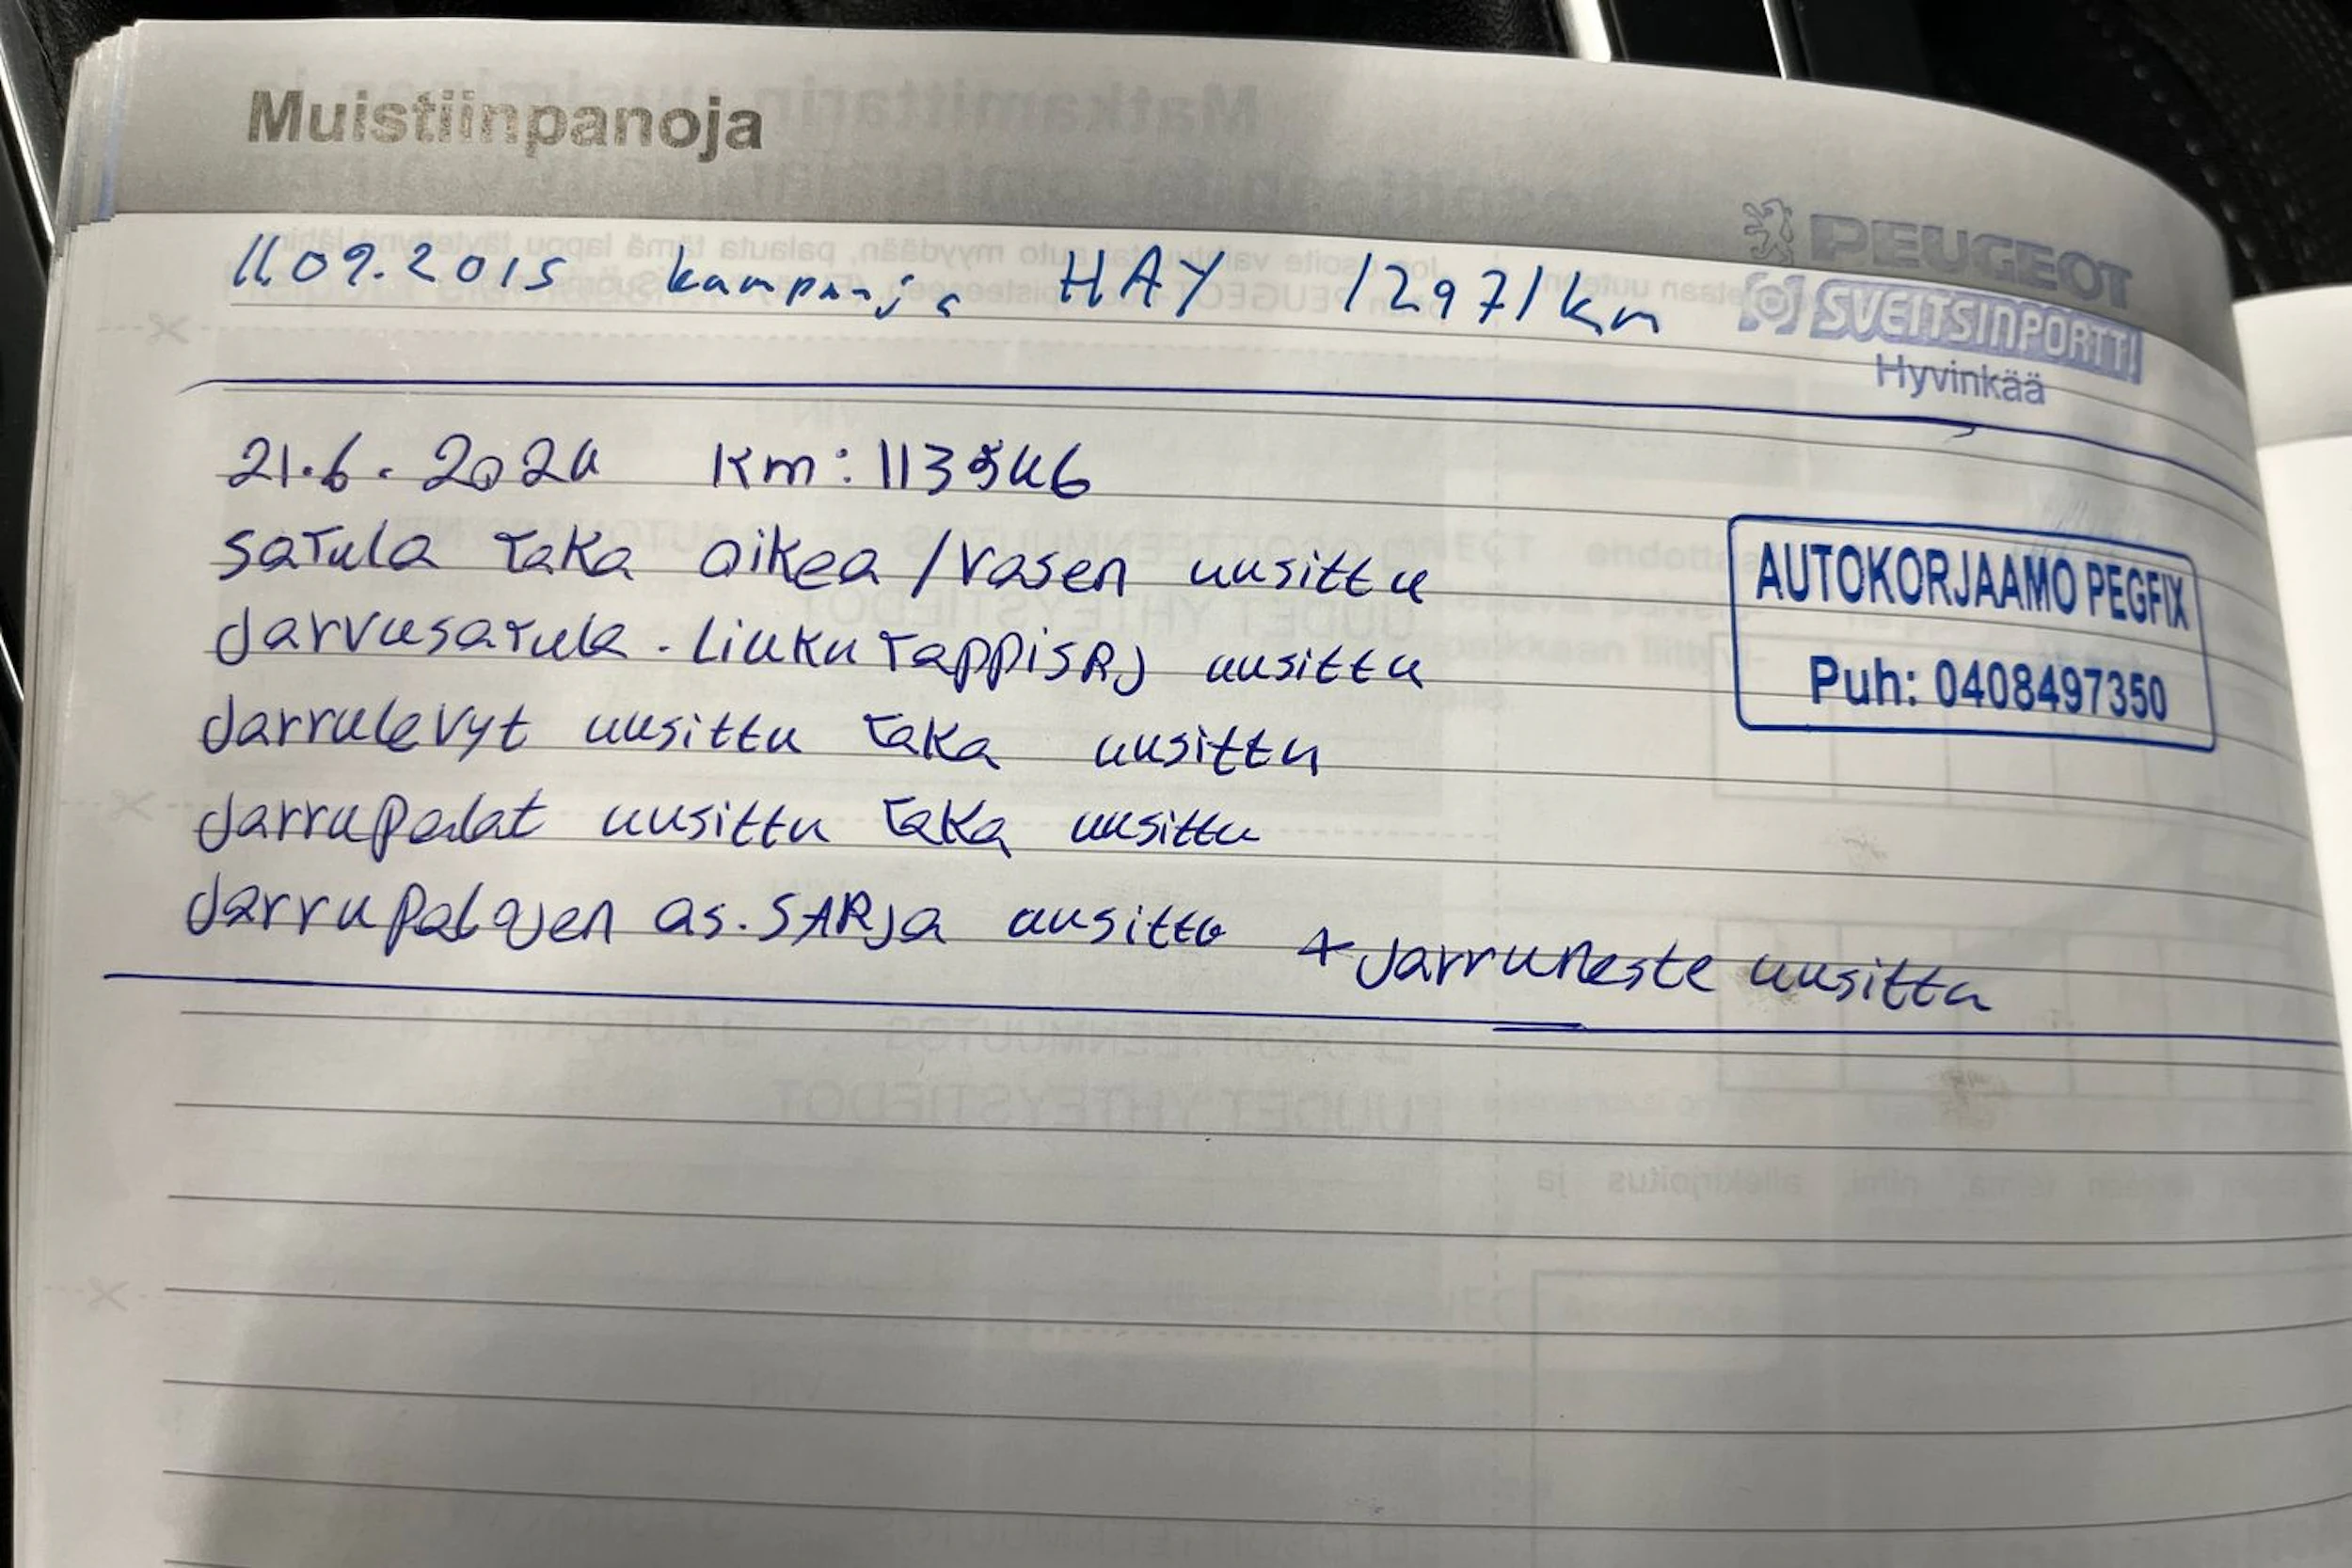 Muistiinpanoja
PEUGEOT
SVEITSINPORTTI
Hyvinkää
11.09.2015 kampanja HAY 12971km
21.6.2024 Km: 113546
satula taka oikea/vasen uusittu
Jarrusatula. Liukutappisarj uusittu
Jarrulevyt uusittu taka uusittu
Jarrupalat uusittu taka uusittu
Jarrupalojen as. SARja uusittu + Jarruneste uusittu
AUTOKORJAAMO PEGFIX
Puh: 0408497350